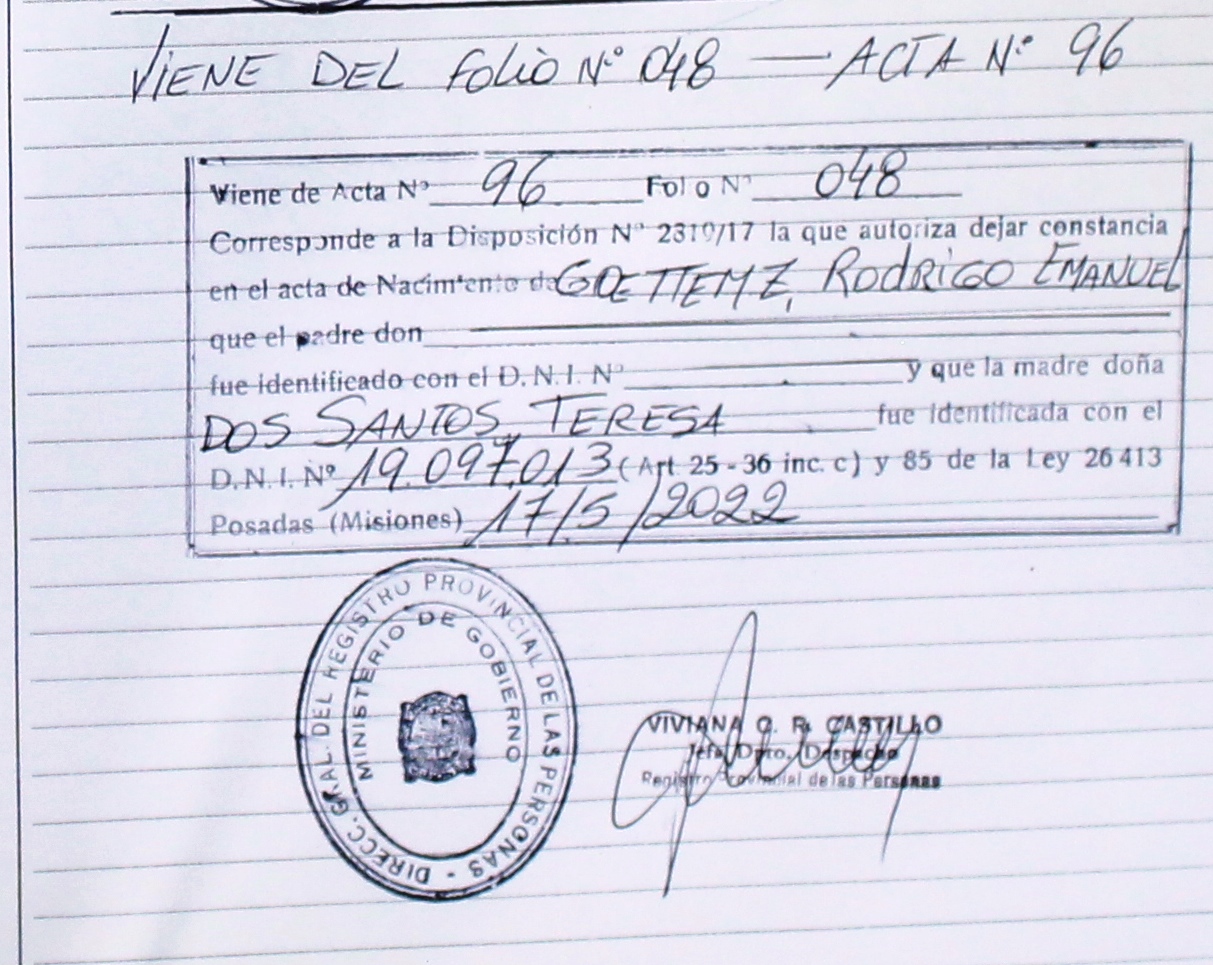 VIENE DEL FOLIO Nº 048 — ACTA Nº 96
Viene de Acta Nº 96 Folio Nº 048
Corresponde a la Disposición Nº 2310/17 la que autoriza dejar constancia
en el acta de Nacimiento de GOETTEMZ, RODRIGO EMANUEL
que el padre don
fue identificado con el D.N.I. Nº y que la madre doña
DOS SANTOS, TERESA fue identificada con el
D.N.I. Nº 19.097.013 (Art. 25 - 36 inc. c) y 85 de la Ley 26413
Posadas (Misiones) 17/5/2022
DIRECC. GRAL. DEL REGISTRO PROVINCIAL DE LAS PERSONAS -
MINISTERIO DE GOBIERNO
VIVIANA C. R. CASTILLO
Jefa Dpto. Despacho
Registro Provincial de las Personas